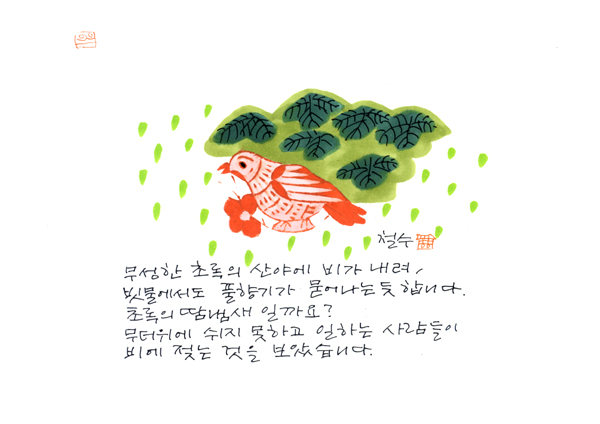 철수
무성한 초록의 산야에 비가 내려,
빗물에서도 풀향기가 묻어나는듯 합니다.
초록의 땀냄새 일까요?
무더위에 쉬지 못하고 일하는 사람들이
비에 젖는 것을 보았습니다.